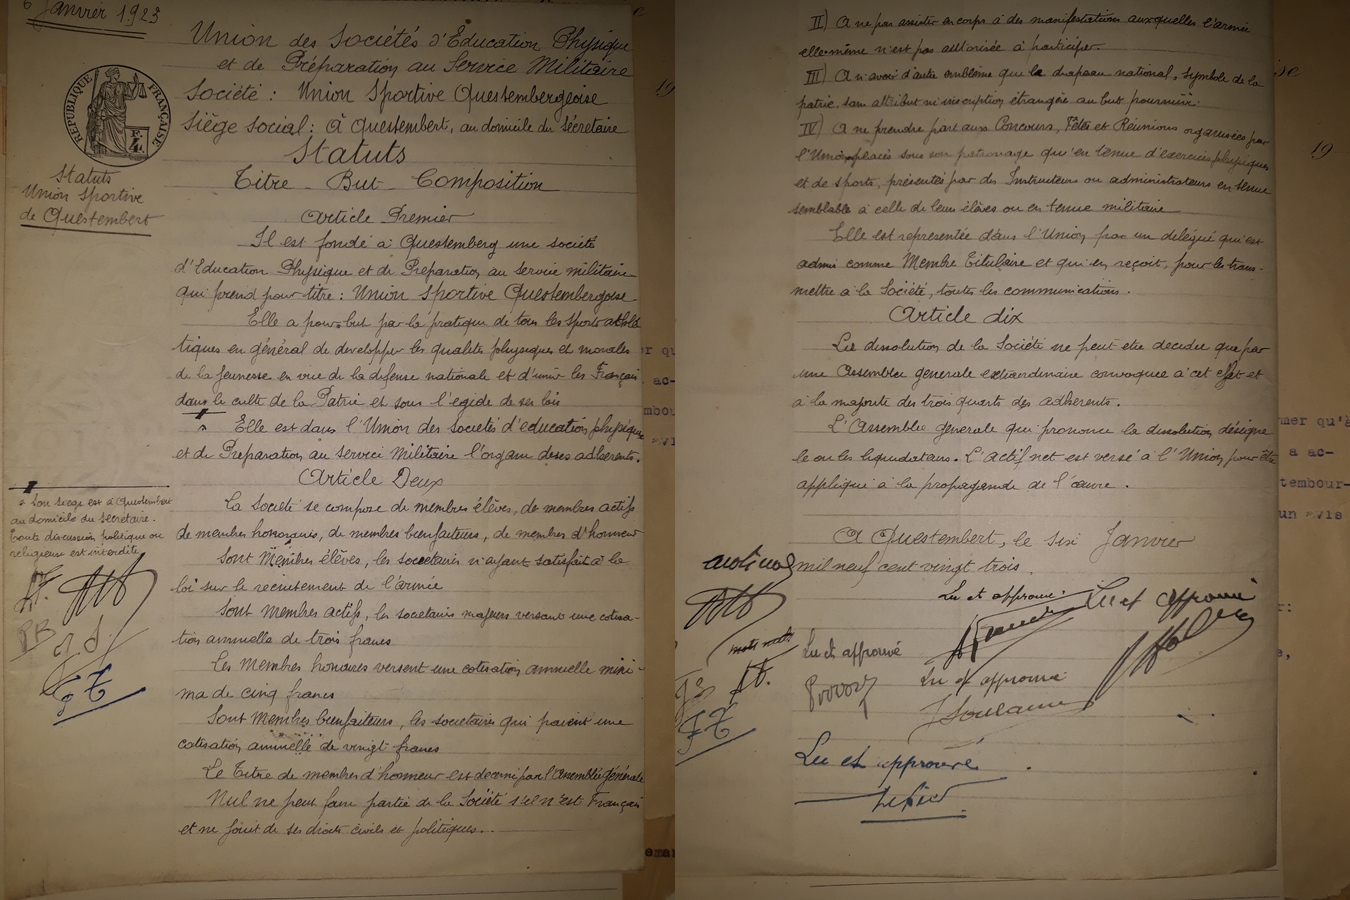 6 Janvier 1923
Union des Sociétés d'Éducation Physique
et de Préparation au Service Militaire
Société : Union Sportive Questembergeoise
Siège Social : à Questembert, au domicile du Secrétaire
Statuts
Titre - But - Composition
RÉPUBLIQUE FRANÇAISE
Statuts
Union Sportive
de Questembert
Article Premier
Il est fondé à Questemberg une société
d'Education Physique et de Préparation au service militaire
qui prend pour titre : Union Sportive Questembergeoise
Elle a pour but par la pratique de tous les sports athlé
tiques en général de developper les qualités physiques et morales
de la Jeunesse en vue de la défense nationale et d'unir les Français
dans le culte de la Patrie et sous l'egide de ses lois
Elle est dans l'Union des Societés d'education physique
et de Préparation au Service Militaire l'organe de ses adherents.
* Son siege est à Questembert
au domicile du Secrétaire.
Toute discussion politique ou
religieuse est interdite
Article Deux
La Société se compose de membres élèves, de membres actifs
de membres honoraires, de membres bienfaiteurs, de membres d'honneur
Sont Membres élèves, les societaires n'ayant satisfait à la
loi sur le recrutement de l'armée
Sont Membres actifs, les societaires majeurs versant une cotisa-
tion annuelle de trois francs
Les Membres honoraires versent une cotisation annuelle mini-
ma de cinq francs
Sont Membres bienfaiteurs, les societaires qui paient une
cotisation annuelle de vingt francs
Le Titre de membres d'honneur est decerné par l'Assemblée générale
Nul ne peut faire partie de la Société s'il n'est Français
et ne jouit de ses droits civils et politiques.
II) A ne pas assister en corps à des manifestations auxquelles l'armée
elle-même n'est pas autorisée à participer.
III) A n'avoir d'autre emblème que le drapeau national, symbole de la
patrie, sans attribut ni inscription étrangère au but poursuivi
IV) A ne prendre part aux Concours, Fêtes et Réunions organisées par
l'Union placés sous son patronage qu'en tenue d'exercices physiques
et de sports, présentés par des Instructeurs ou administrateurs en tenue
semblable à celle de leurs élèves ou en tenue militaire
Elle est representée dans l'Union par un délégué qui est
admis comme Membre Titulaire et qui en reçoit, pour les trans-
mettre à la Société, toutes les communications.
Article dix
La dissolution de la Société ne peut etre decidée que par
une Assemblée generale extraordinaire convoquée à cet effet et
à la majorité des trois quarts des adherents.
L'Assemblée generale qui prononce la dissolution désigne
le ou les liquidateurs. L'actif net est versé à l'Union pour être
appliqué à la propagande de l'œuvre.
A Questembert, le six Janvier
mil neuf cent vingt trois.
Lu et approuvé :
Lu et approuvé
Lu et approuvé
Lu et approuvé
Lu et approuvé
19
19